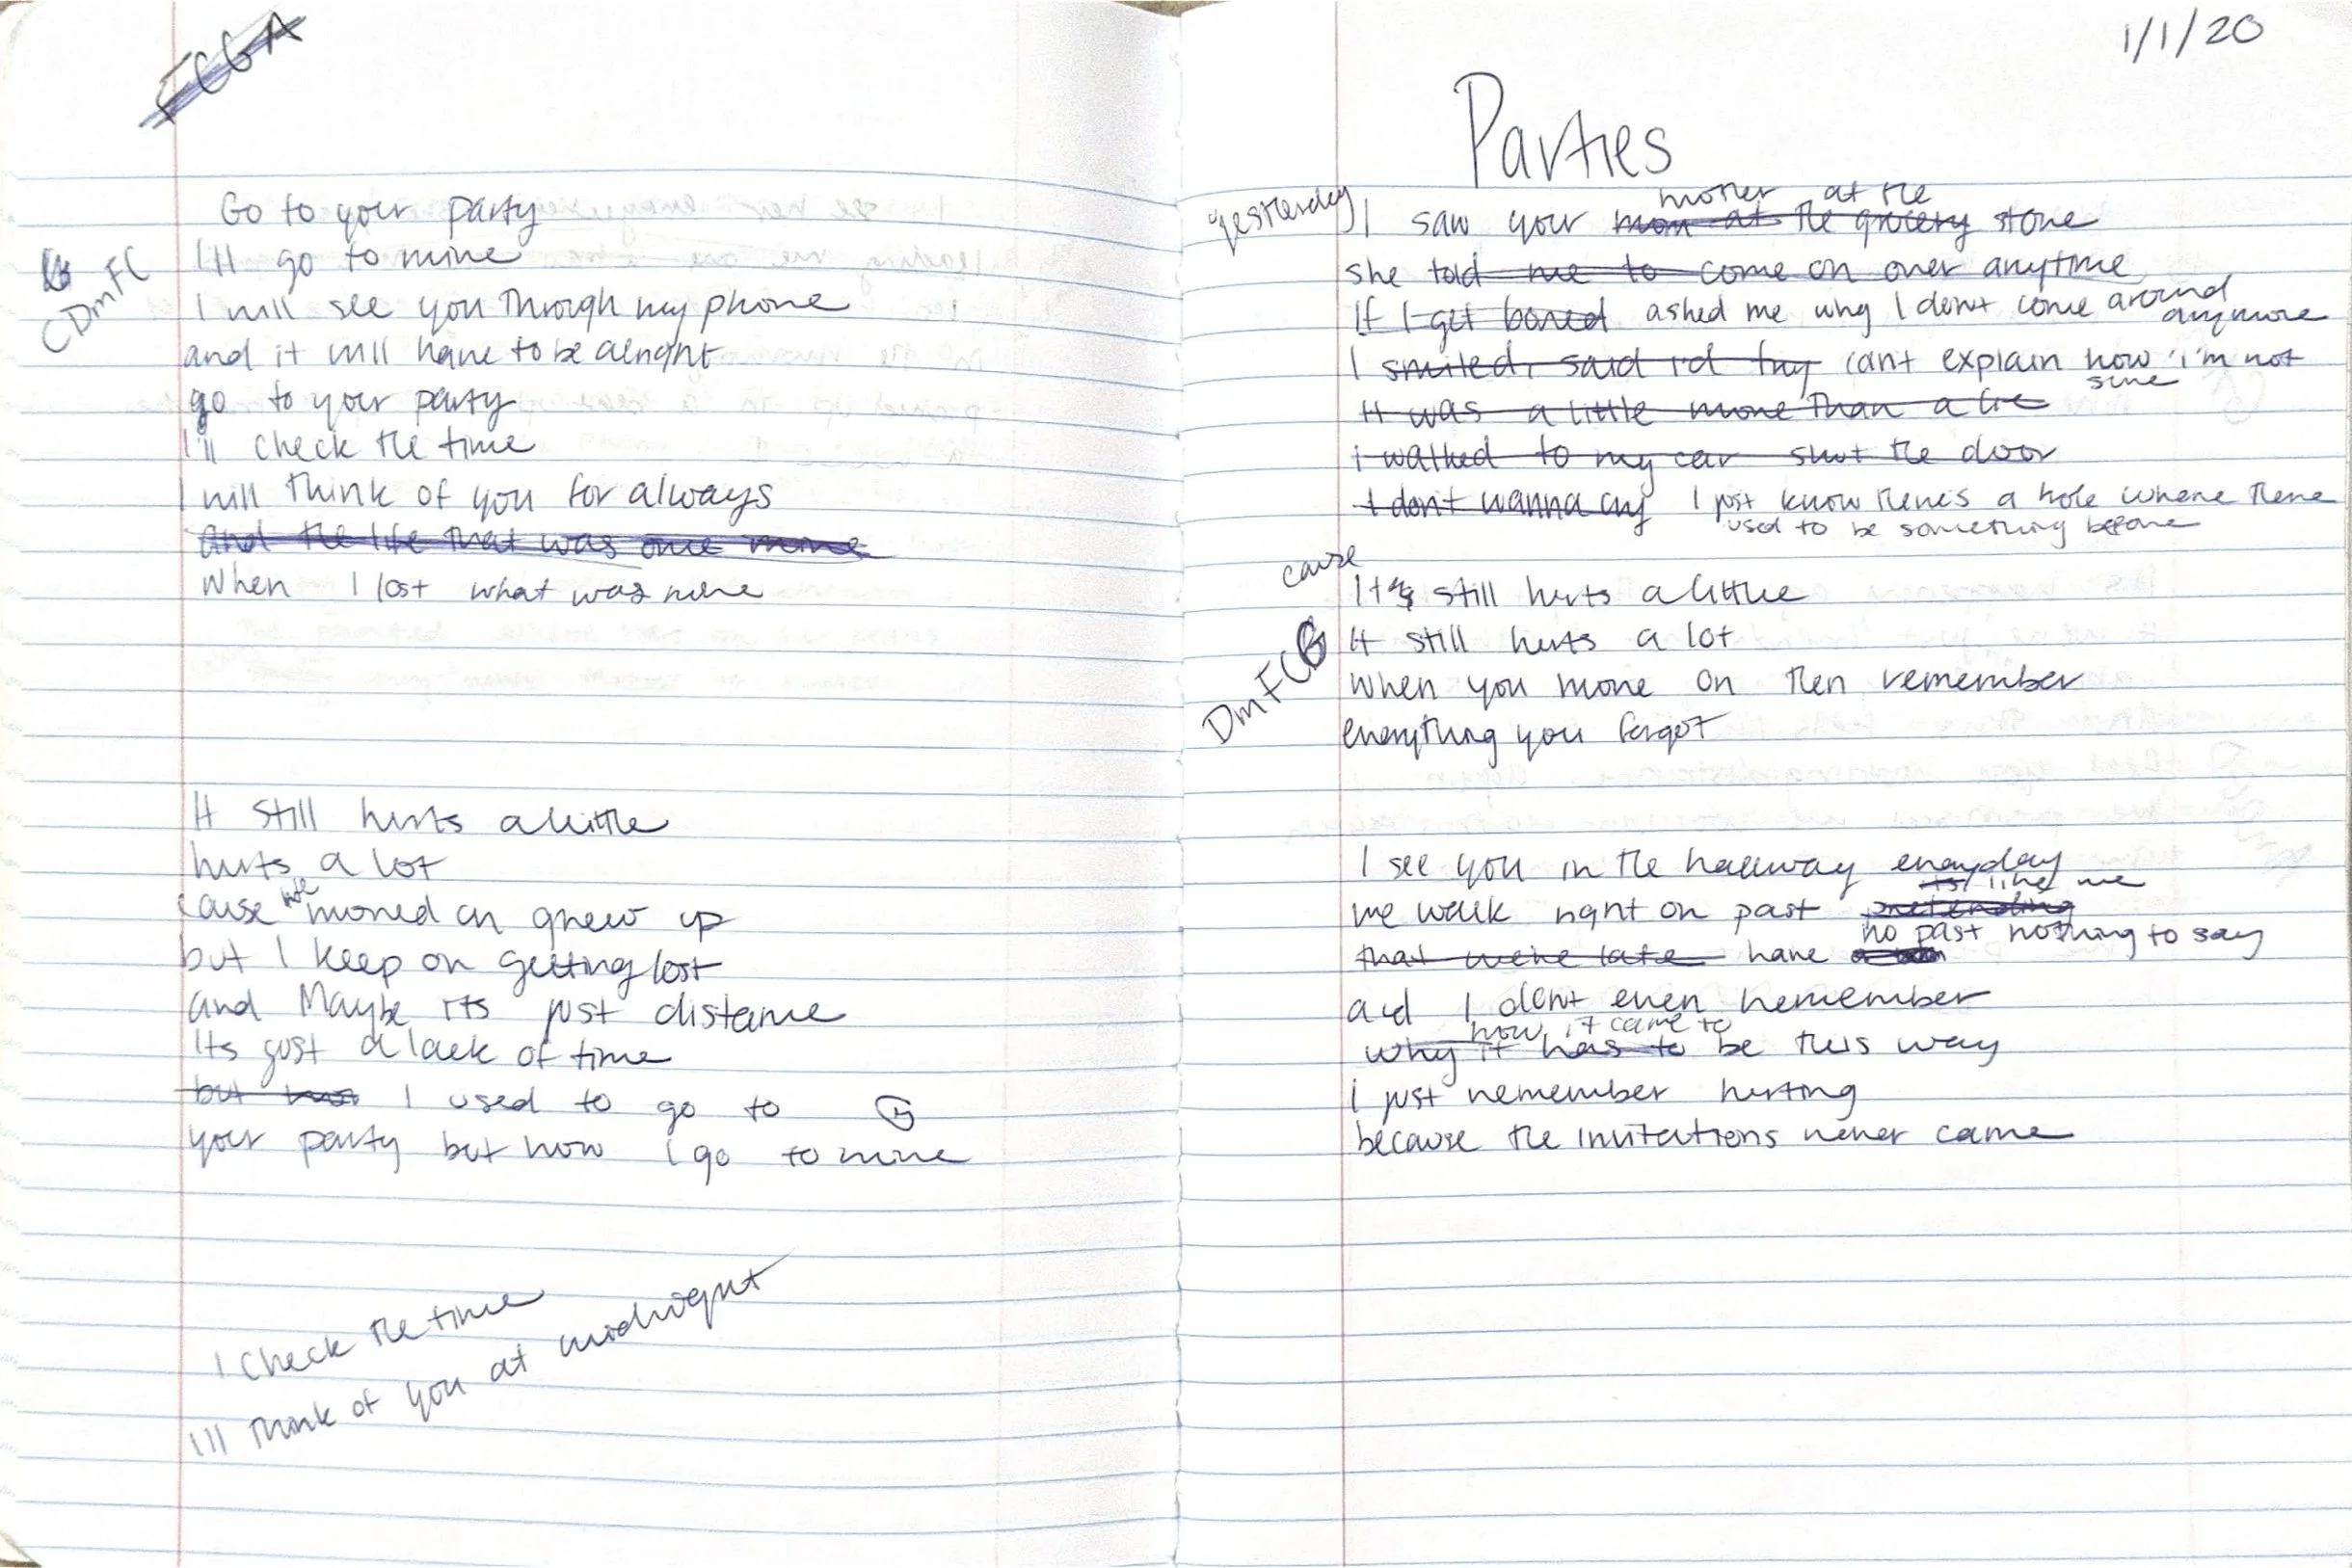 FCGA
Go to your party
I'll go to mine
CDmFC
I will see you through my phone
and it will have to be alright
go to your party
I'll check the time
I will think of you for always
And the life that was once mine
When I lost what was mine
It still hurts a little
hurts a lot
cause we moved on grew up
but I keep on getting lost
and Maybe its just distance
Its just a lack of time
but I used to go to G
your party but now I go to mine
I check the time
I'll think of you at midnight
1/1/20
Parties
mother at the
yesterday I saw your mom at the grocery store
she told me to come on over anytime
If I get bored asked me why I don't come around
anymore
I smiled, said i'd try cant explain how i'm not
sure
It was a little more than a lie
i walked to my car shut the door
I don't wanna cry I just know there's a hole where there
used to be something before
cause
It still hurts a little
DmFCG
It still hurts a lot
When you move on then remember
everything you forgot
I see you in the hallway everyday
its like we
we walk right on past pretending
no past nothing to say
that we're late have
and I don't even remember
how it came to
why it has to be this way
i just remember hurting
because the invitations never came